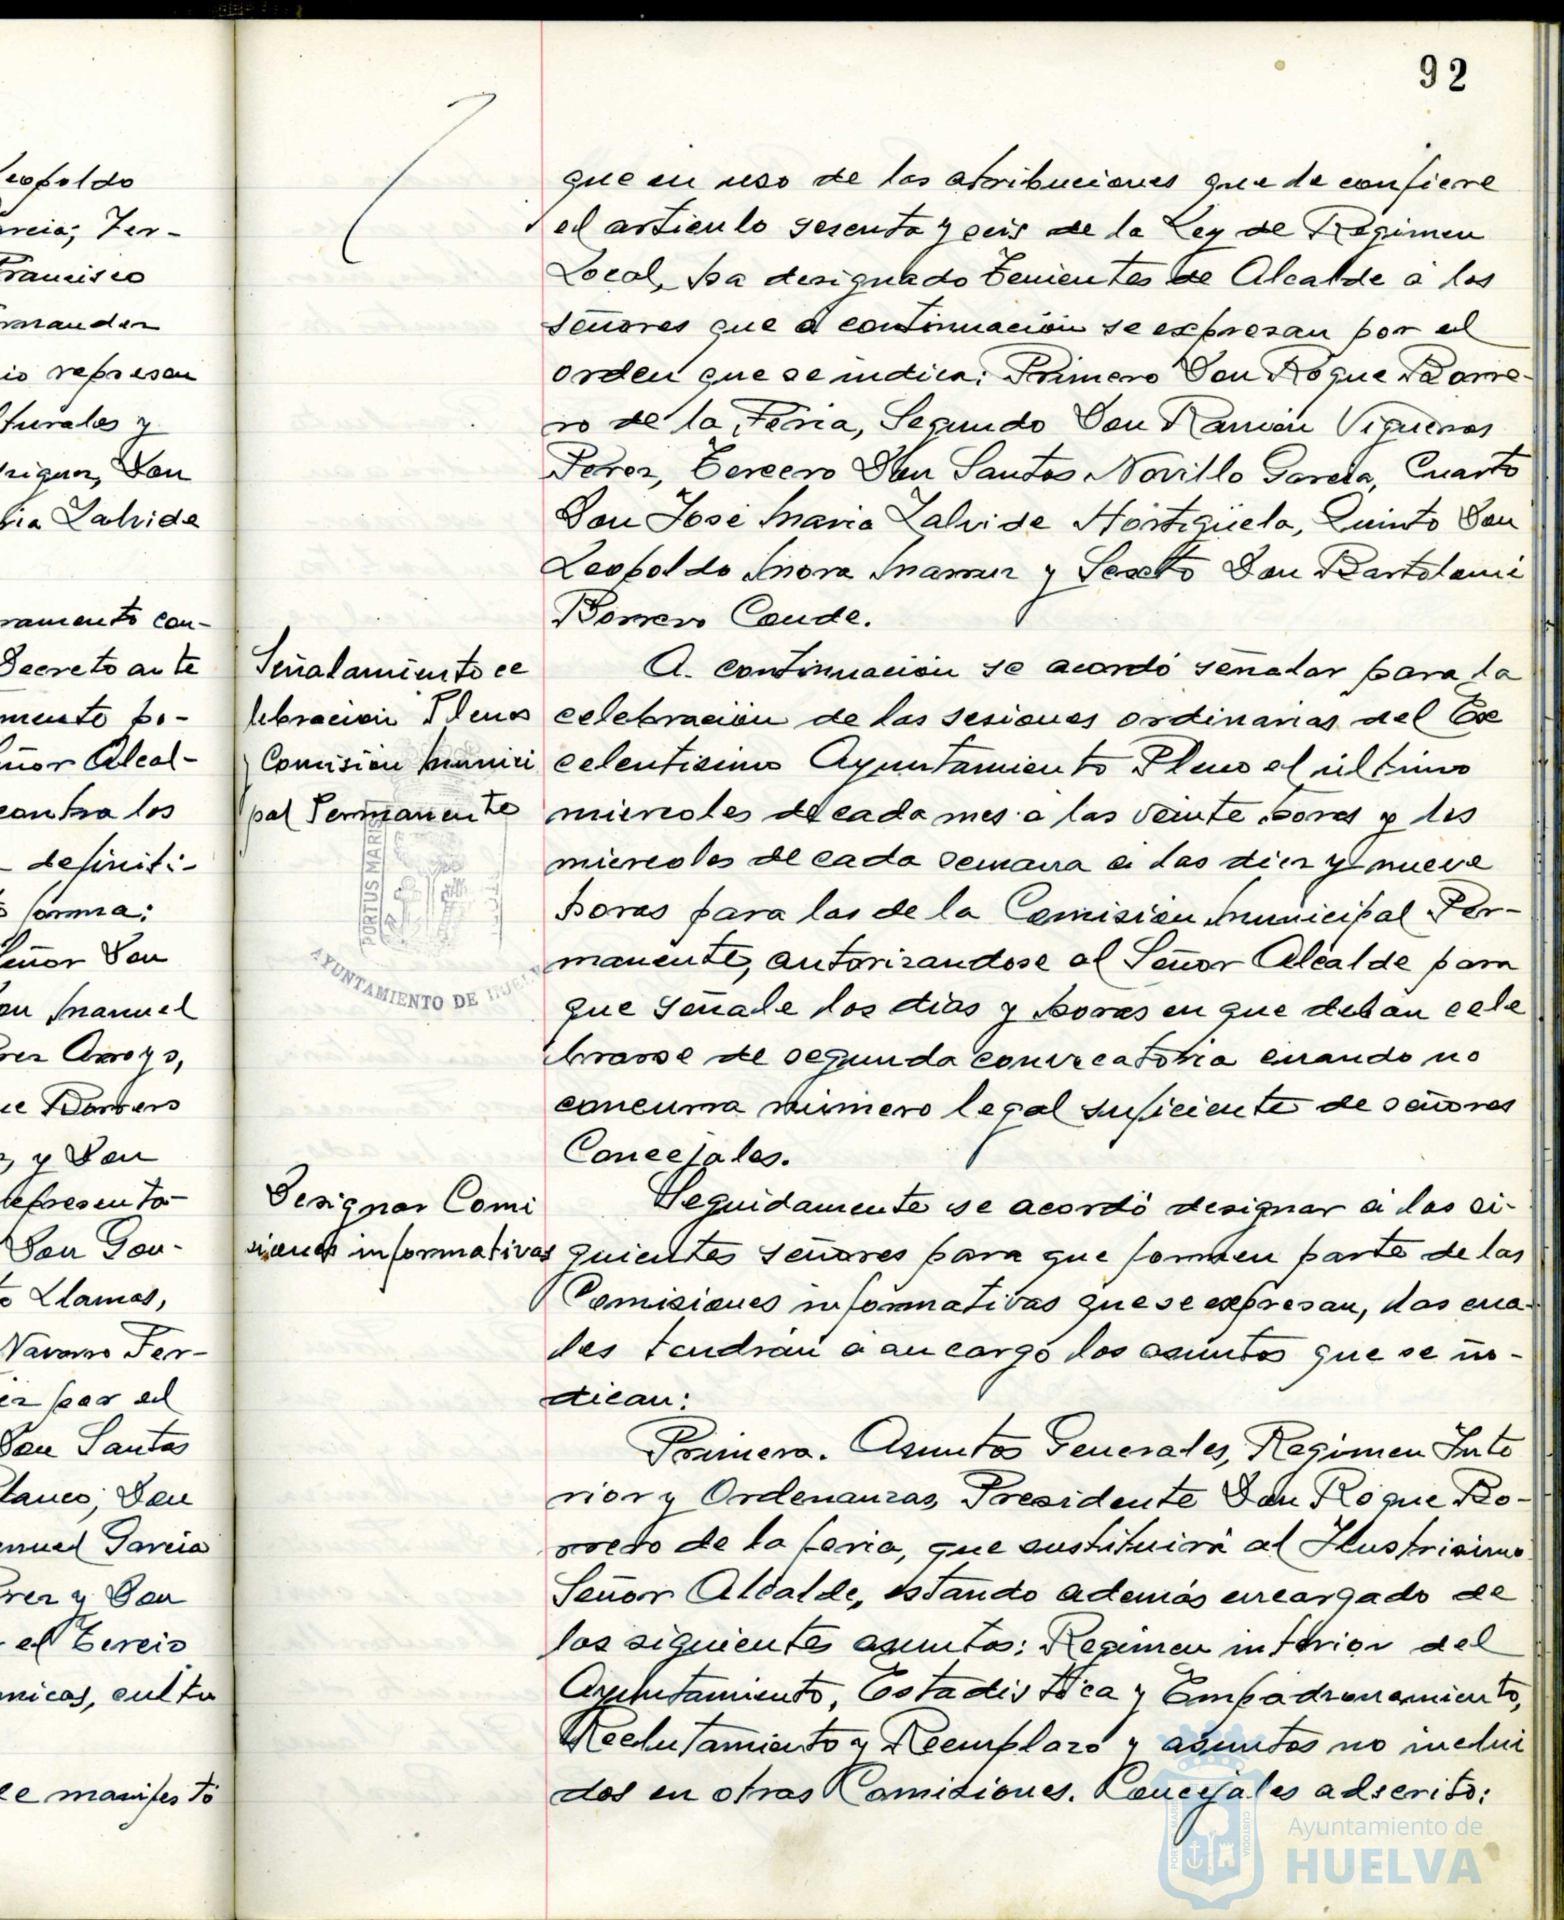 92
eopoldo
arcia; Fer-
Francisco
rnander
io represen
turales y
Don
ria Zalvide
ramento con-
Decreto an te
mento po-
eñor Alcal-
contra los
definiti-
forma:
eñor Don
on Manuel
rez Arroyo,
ue Borrero
y Don
representa-
Don Gon-
to Llamas,
Navarro Fer-
ez por el
Don Santos
lanco; Don
anuel Garcia
rez y Don
el Tercio
micas, cultu
se manifestó
Señalamiento ce
lebracion Plenos
y Comisión Munici
pal Permanente
PORTUS MARIS
AYUNTAMIENTO DE HUELVA
Designar Comi
siones informativas
que en uso de las atribuciones que le confiere
el articulo sesenta y seis de la Ley de Regimen
Local, ha designado Tenientes de Alcalde a los
señores que a continuación se expresan por el
orden que se indica: Primero Don Roque Borre-
ro de la Feria, Segundo Don Ramón Vigueras
Perez, Tercero Don Santos Novillo Garcia, Cuarto
Don José Maria Zalvide Hortigüela, Quinto Don
Leopoldo Mora y Sexto Don Bartolomé
Borrero Conde.
A continuación se acordó señalar para la
celebración de las sesiones ordinarias del Ex
celentisimo Ayuntamiento Pleno el último
miercoles de cada mes a las veinte horas y los
miercoles de cada semana a las diez y nueve
horas para las de la Comisión Municipal Per-
manente, autorizandose al Señor Alcalde para
que señale los dias y horas en que deban cele
brarse de segunda convocatoria cuando no
concurra número legal suficiente de señores
Concejales.
Seguidamente se acordó designar a los si-
guientes señores para que formen parte de las
Comisiones informativas que se expresan, las cua-
les tendrán a su cargo los asuntos que se in-
dican:
Primera. Asuntos Generales, Regimen Inte
rior y Ordenanzas, Presidente Don Roque Bo-
rrero de la feria, que sustituirá al Ilustrisimo
Señor Alcalde, estando además encargado de
los siguientes asuntos: Regimen interior del
Ayuntamiento, Estadistica y Empadronamiento,
Reclutamiento y Reemplazo y asuntos no inclui
dos en otras Comisiones. Concejales adscrito:
Ayuntamiento de
HUELVA